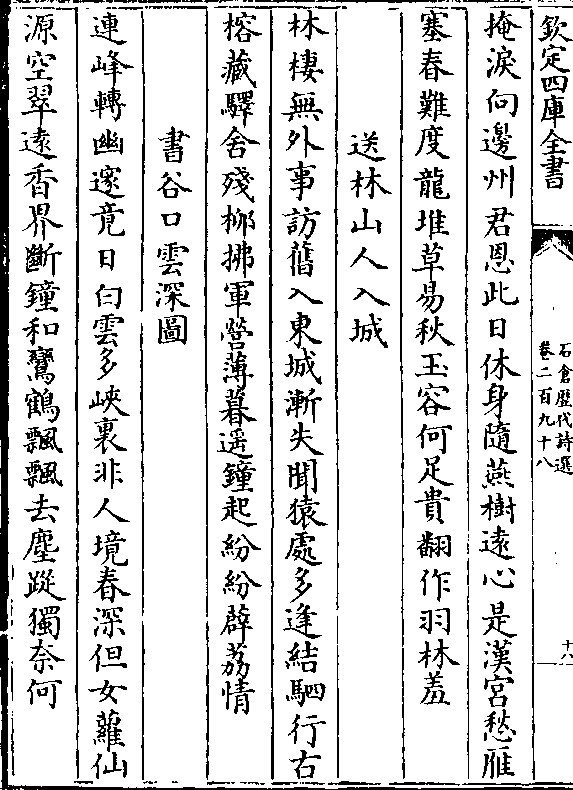 欽定四庫全書
石倉歷代詩選
卷二百九十八
十八
掩淚向邊州君恩此日休身隨燕樹遠心是漢宮愁雁
塞春難度龍堆草易秋玉容何足貴翻作羽林羞
送林山人入城
林棲無外事訪舊入東城漸失聞猿處多逢結駟行古
榕藏驛舍殘栁拂軍營薄暮遥鐘起紛紛薜荔情
書谷口雲深圖
連峰轉幽邃竟日白雲多峽裏非人境春深但女蘿仙
源空翠遠香界斷鐘和鸞鶴飄飄去塵蹤獨奈何